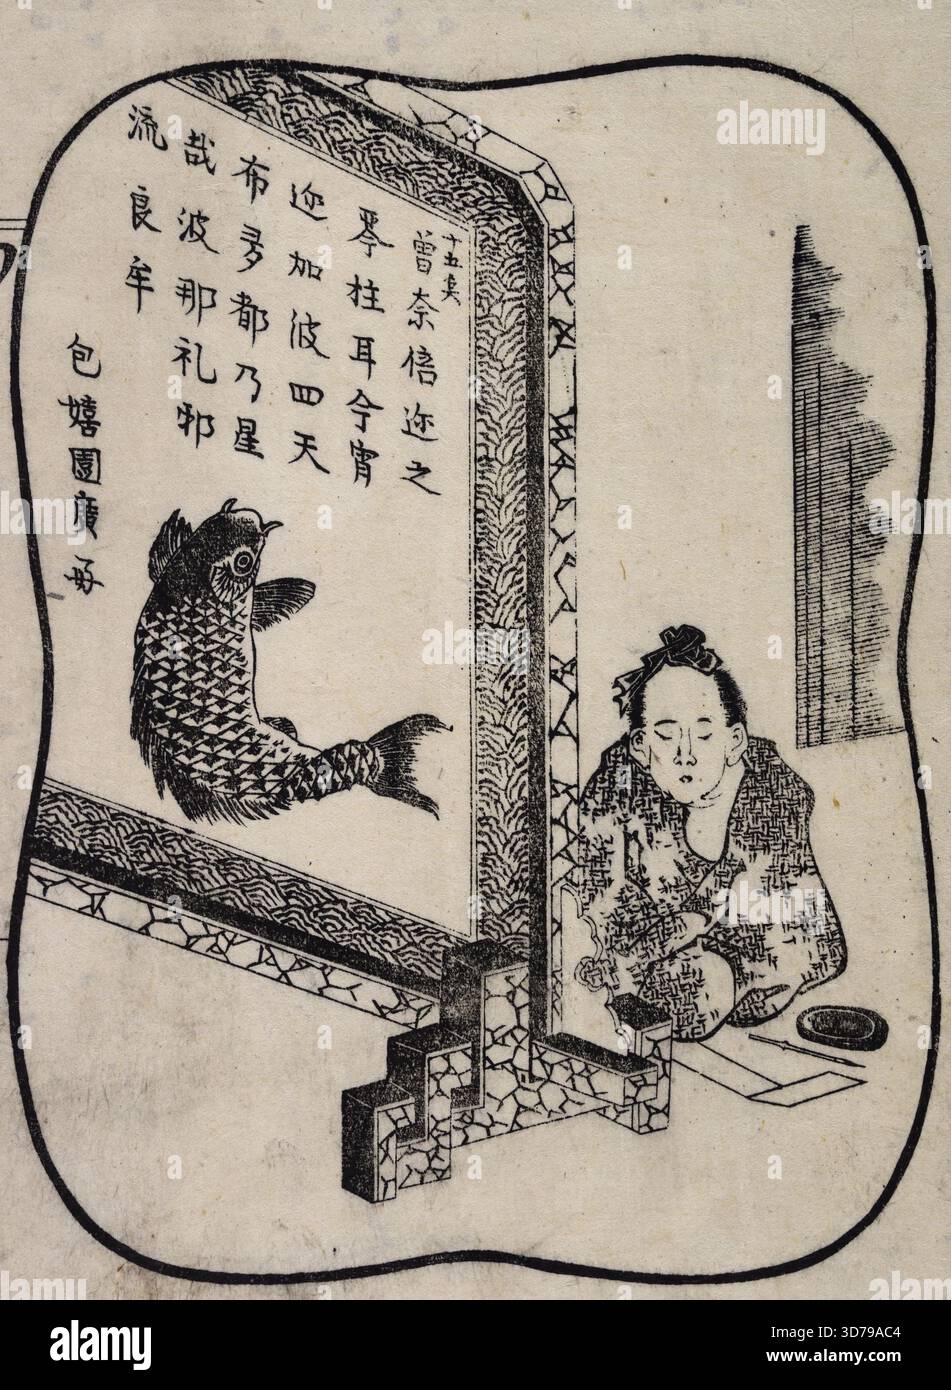 十五点
曾奈倍迩之
琴柱耳今宵
迩加波四天
布多都乃星
哉波那礼邪
流良牟
包嬉園廣丹
alamy
Image ID: 3D79AC4
www.alamy.com